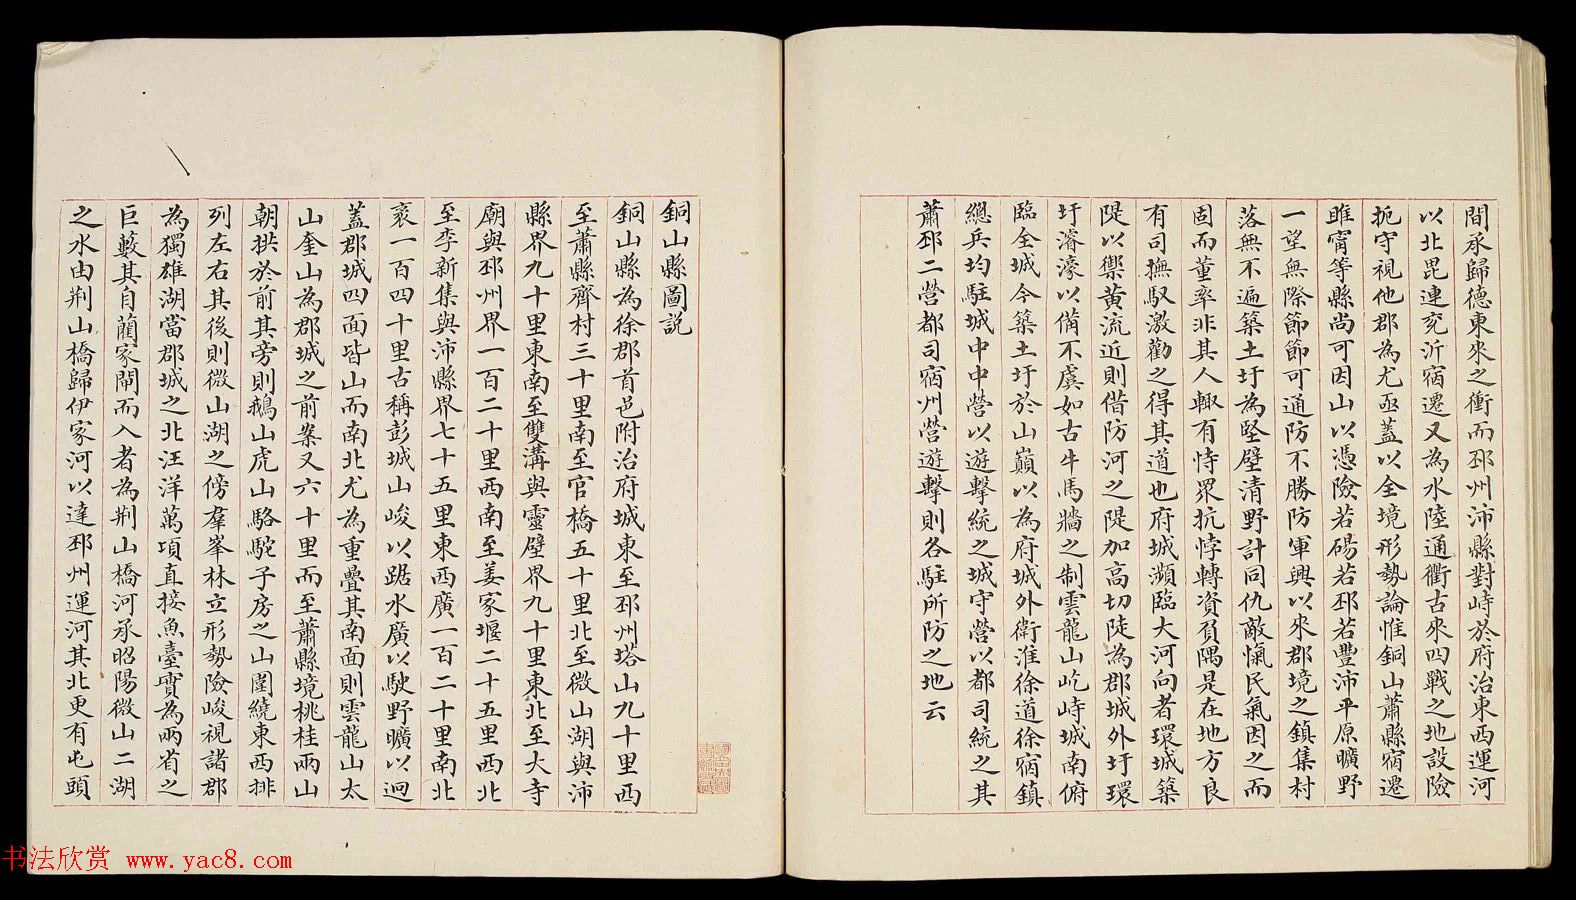 間承歸德東來之衝而邳州沛縣對峙於府治東西運河
以北毘連兖沂宿遷又為水陸通衢古來四戰之地設險
扼守視他郡為尤亟蓋以全境形勢論惟銅山蕭縣宿遷
睢甯等縣尚可因山以憑險若碭若邳若豐沛平原曠野
一望無際節節可通防不勝防軍興以來郡境之鎮集村
落無不遍築土圩為堅壁清野計同仇敵愾民氣因之而
固而董率非其人輒有恃衆抗悖轉資負隅是在地方良
有司撫馭激勸之得其道也府城瀕臨大河向者環城築
隄以禦黄流近則借防河之隄加高切陡為郡城外圩環
圩濬濠以備不虞如古牛馬牆之制雲龍山屹峙城南俯
臨全城今築土圩於山巔以為府城外衛淮徐道徐宿鎮
總兵均駐城中中營以遊擊統之城守營以都司統之其
蕭邳二營都司宿州營遊擊則各駐所防之地云
銅山縣圖説
銅山縣為徐郡首邑附治府城東至邳州塔山九十里西
至蕭縣齊村三十里南至官橋五十里北至微山湖與沛
縣界九十里東南至雙溝與靈壁界九十里東北至大寺
廟與邳州界一百二十里西南至姜家堰二十五里西北
至李新集與沛縣界七十五里東西廣一百二十里南北
袤一百四十里古稱彭城山峻以踞水廣以駛野曠以迥
蓋郡城四面皆山而南北尤為重疊其南面則雲龍山太
山奎山為郡城之前案又六十里而至蕭縣境桃桂兩山
朝拱於前其旁則鵝山虎山駱駝子房之山圍繞東西排
列左右其後則微山湖之傍羣峯林立形勢險峻視諸郡
為獨雄湖當郡城之北汪洋萬項直接魚臺實為兩省之
巨藪其自藺家閘而入者為荆山橋河承昭陽微山二湖
之水由荆山橋歸伊家河以達邳州運河其北更有屯頭
书法欣赏 www.yac8.com